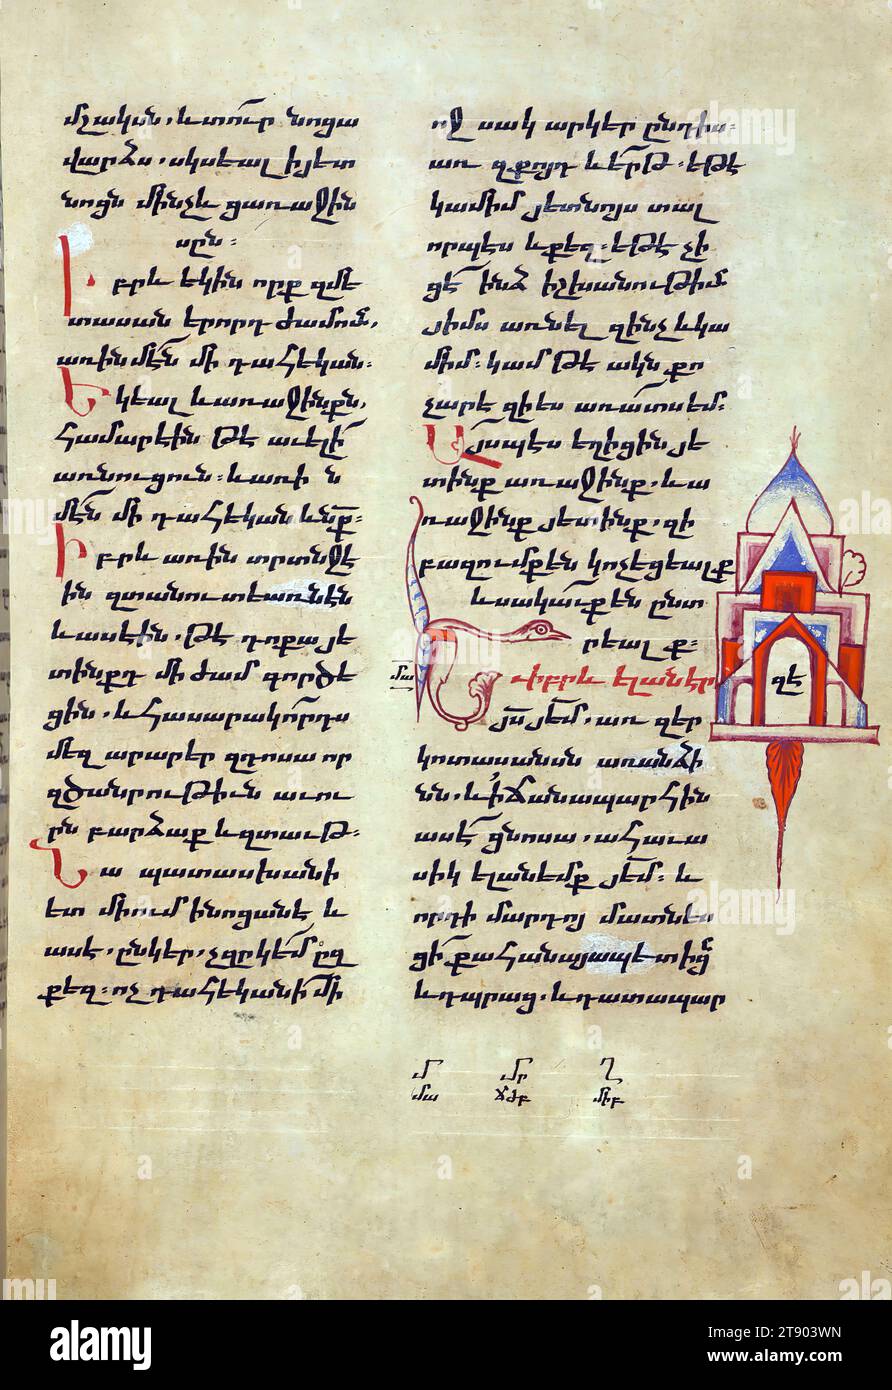 մշակսն, և տո՛ւր նոցա
վարձս. սկսեալ ի յետ
նոցն մինչև ցառաջին
սըն։
Իբրև եկին որք զմե
տասան երորդ ժամուն,
առին մէն մի դահեկան։
Եկեալ և առաջինքն,
համարէին թէ աւելի՛
առնուցուն։ և առի ն
մէն մի դահեկան ևնք։
Իբրև առին տրտնջէ
ին զտանուտեառնէն
և ասէին, թէ դոքա յե
տինքդ մի ժամ գործե
ցին. և հասարակորդս
մեզ արարեր զդոսա որ
զծանրութիւն աւուրն
բարձաք և զտաւթ։
Նա պատասխանի
ետ միում ի նոցանէ և
ասէ. ընկեր, չզրկեմ ըզ
քեզ։ ոչ դահեկանի միոջ
սակ արկեր ընդիս։
առ զքոյդ և երթ. եթէ
կամիմ յետնոյս տալ
որպէս և քեզ։ եթէ չի
ցէ ինձ իշխանութիւն
յիմս առնել զինչ և կա
միմ. կամ թէ ակն քո
չար է զի ես առատս եմ։
Այսպէս եղիցին յե
տինք առաջինք. և ա
ռաջինք յետինք. զի
բազումք են կոչեցեալք
և սակաւք են ընտ
րեալք։
մա
զէ
Եւ իբրև ելանէր
յս յեմ. առ զեր
կոտասանսն առանձի
նն. և ի ճանապարհին
ասէ ցնոսա. ահաւա
սիկ ելանեմք յեմ։ և
որդի մարդոյ մատնես
ցի քահանայապետից
և դպրաց. և դատապար
մ մր ղ
մա ճժբ միբ
alamy
Image ID: 2T903WN
www.alamy.com